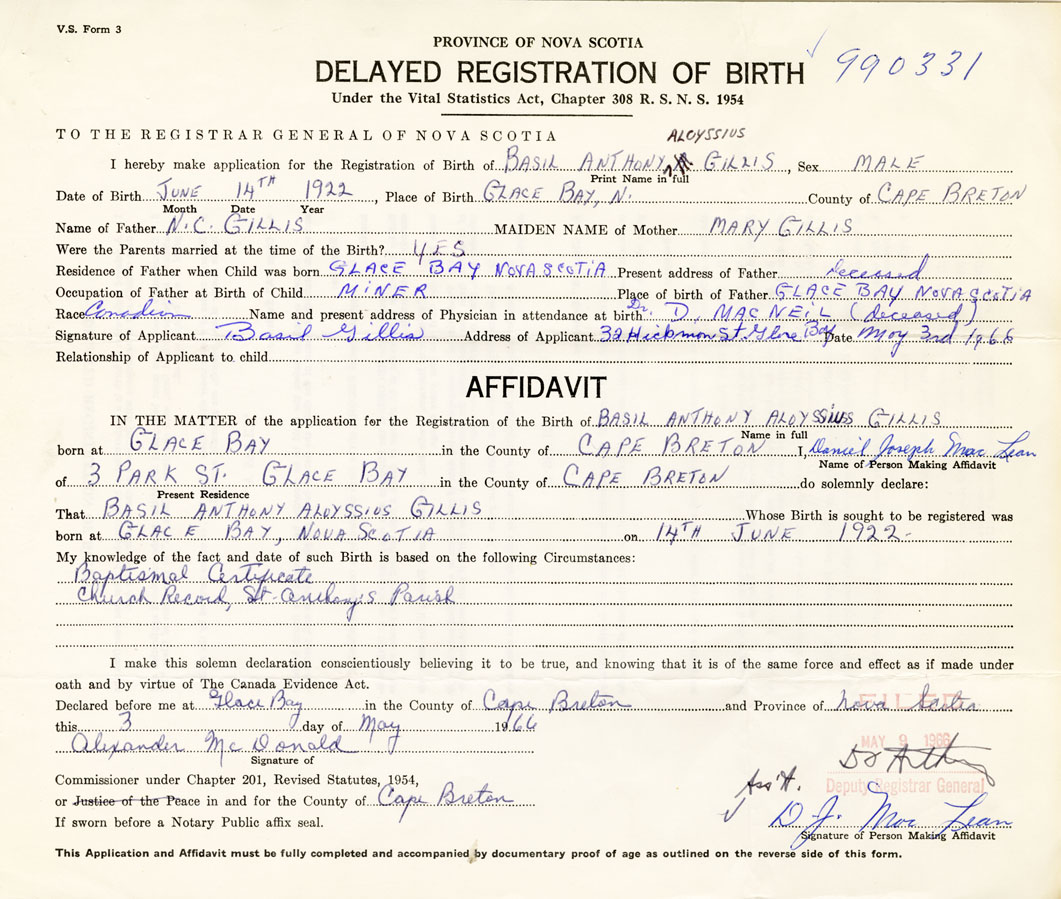 V.S. Form 3
PROVINCE OF NOVA SCOTIA
DELAYED REGISTRATION OF BIRTH 990331
Under the Vital Statistics Act, Chapter 308 R. S. N. S. 1954
TO THE REGISTRAR GENERAL OF NOVA SCOTIA
ALOYSSIUS
I hereby make application for the Registration of Birth of BASIL ANTHONY GILLIS, Sex MALE
Print Name in full
Date of Birth JUNE 14TH 1922, Place of Birth GLACE BAY, N. County of CAPE BRETON
Month Date Year
Name of Father N.C. GILLIS MAIDEN NAME of Mother MARY GILLIS
Were the Parents married at the time of the Birth? YES
Residence of Father when Child was born GLACE BAY NOVA SCOTIA Present address of Father deceased
Occupation of Father at Birth of Child MINER Place of birth of Father GLACE BAY NOVA SCOTIA
Race Canadian Name and present address of Physician in attendance at birth Dr. D. MACNEIL (deceased)
Signature of Applicant Basil Gillis Address of Applicant 32 Hickmon St. Glace Bay Date May 3rd 1966
Relationship of Applicant to child
AFFIDAVIT
IN THE MATTER of the application for the Registration of the Birth of BASIL ANTHONY ALOYSSIUS GILLIS
Name in full
born at GLACE BAY in the County of CAPE BRETON I, Daniel Joseph Mac Lean
Name of Person Making Affidavit
of 3 PARK ST. GLACE BAY in the County of CAPE BRETON do solemnly declare:
Present Residence
That BASIL ANTHONY ALOYSSIUS GILLIS Whose Birth is sought to be registered was
born at GLACE BAY, NOVA SCOTIA on 14TH JUNE 1922-
My knowledge of the fact and date of such Birth is based on the following Circumstances:
Baptismal Certificate
Church Record, St. Anthony's Parish
I make this solemn declaration conscientiously believing it to be true, and knowing that it is of the same force and effect as if made under
oath and by virtue of The Canada Evidence Act.
Declared before me at Glace Bay in the County of Cape Breton and Province of Nova Scotia
FILED
this 3 day of May 1966
MAY 9 1966
Alexander McDonald
Signature of
Commissioner under Chapter 201, Revised Statutes, 1954,
Ass't. Deputy Registrar General
or Justice of the Peace in and for the County of Cape Breton
If sworn before a Notary Public affix seal.
D. J. Mac Lean
Signature of Person Making Affidavit
This Application and Affidavit must be fully completed and accompanied by documentary proof of age as outlined on the reverse side of this form.